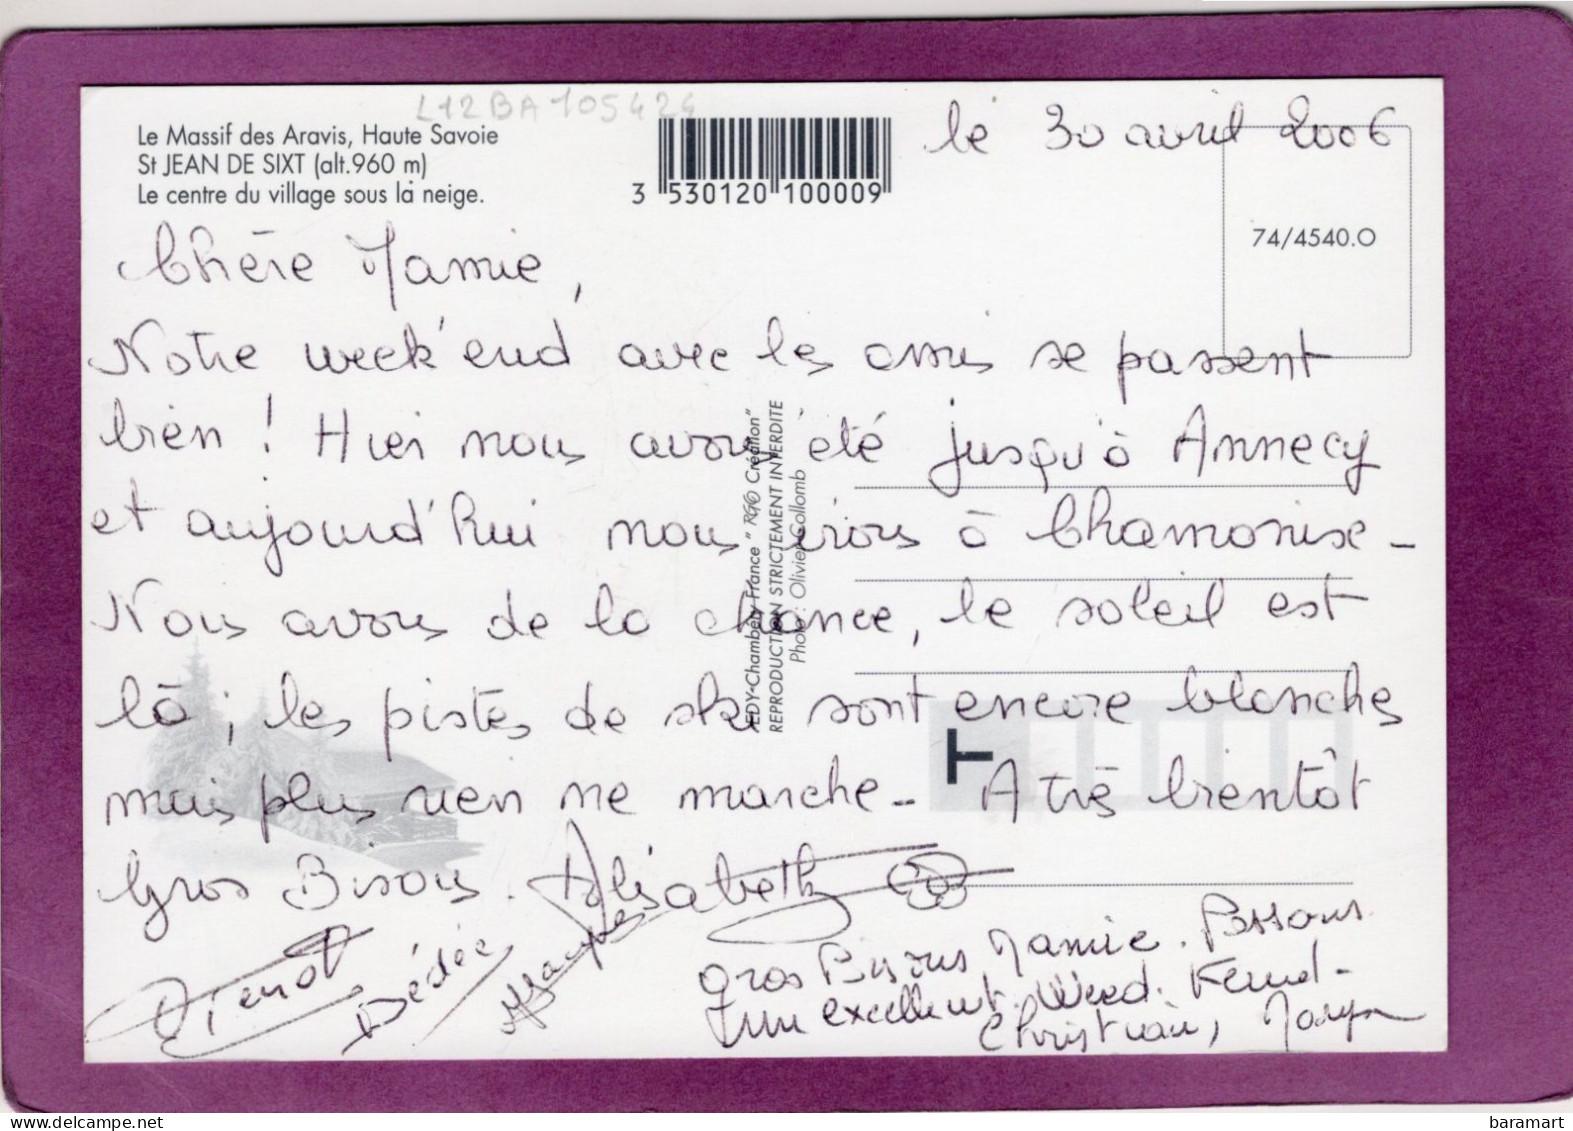 L12BA105424
Le Massif des Aravis, Haute Savoie
St JEAN DE SIXT (alt.960 m)
Le centre du village sous la neige.
3 530120 100009
le 30 avril 2006
74/4540.O
Chère Mamie,
Notre week'end avec les amis se passent
bien ! Hier nous avons été jusqu'à Annecy
et aujourd'hui nous irons à Chamonix -
Nous avons de la chance, le soleil est
là ; les pistes de ski sont encore blanches
mais plus rien ne marche - A très bientôt
Gros Bisous. Elisabeth
EDY-Chambéry France " RGO Création"
REPRODUCTION STRICTEMENT INTERDITE
Photo : Olivier Collomb
T
Dédée
Jacques
Gros Bisous Mamie. Passons
un excellent Weed. Kend-
Christian,
baramart